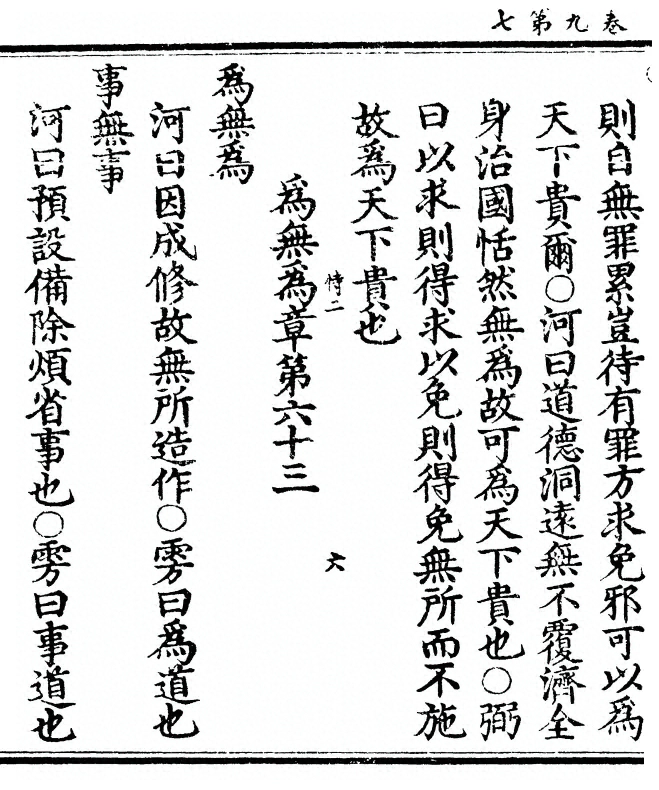 卷九第七
則自無罪累豈待有罪方求免邪可以爲
天下貴爾○河曰道德洞遠無不覆濟全
身治國恬然無爲故可爲天下貴也○弼
曰以求則得求以免則得免無所而不施
故爲天下貴也
恃二
六
爲無爲章第六十三
爲無爲
河曰因成修故無所造作○雱曰爲道也
事無事
河曰預設備除煩省事也○雱曰事道也